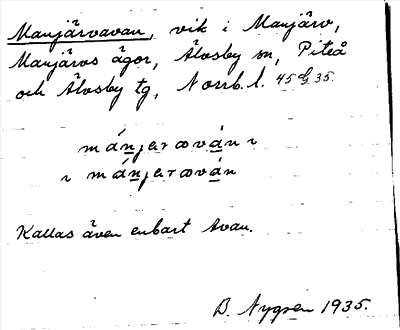 Manjärvavan, vik i Manjärv,
Manjärvs ägor, Älvsby sn, Piteå
och Älvsby tg, Norrb. l. 45 G 35.
mánjərəván ı
ı mánjərəván
Kallas även enbart Avan.
B. Nygren 1935.